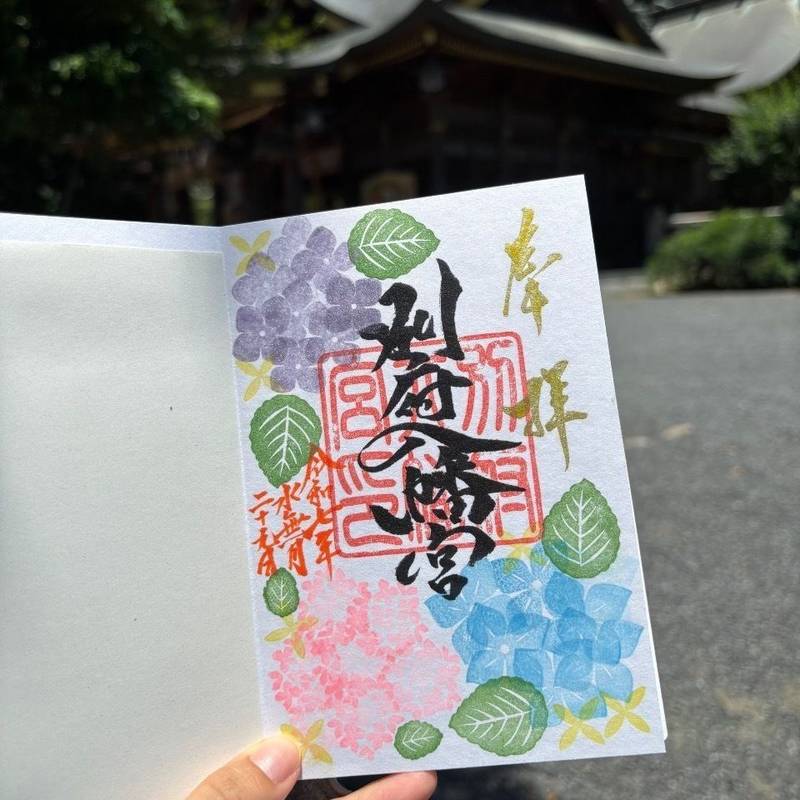 奉拝
別府八幡宮
令和七年
水無月
二十九日